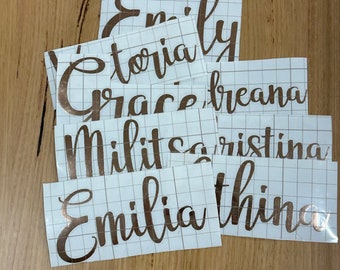 Emily
toria
Grace
breana
Milit
ristina
Emilia
thina